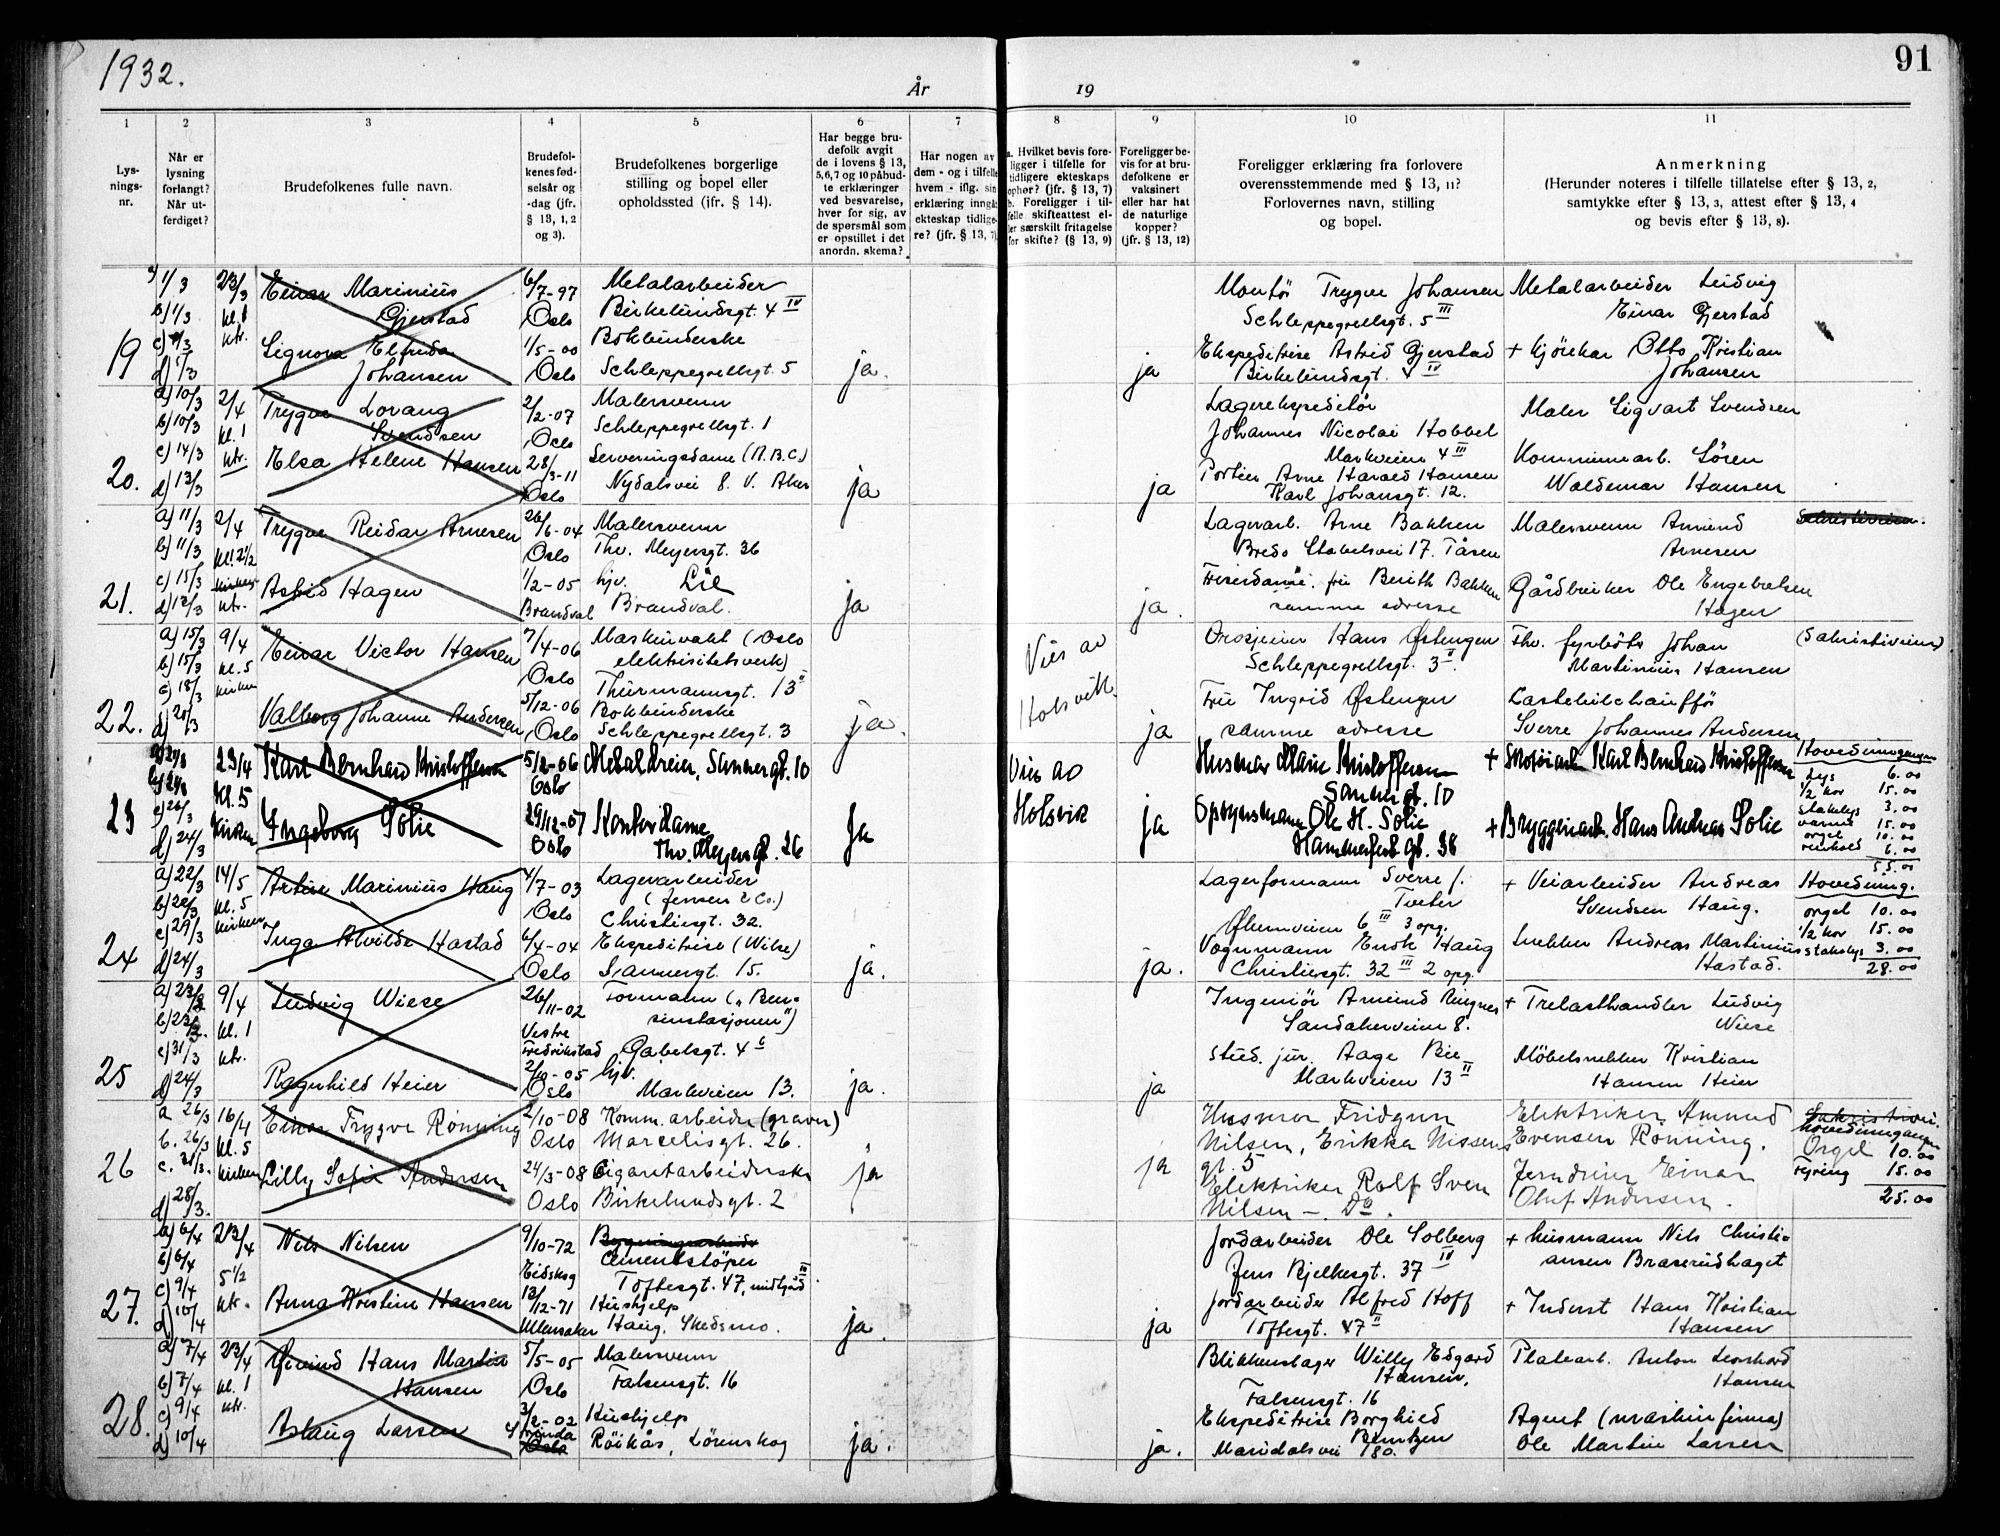 1932.
År
19
91
1
2
3
4
5
6
7
8
9
10
11
Lys-
nings-
nr.
Når er
lysning
forlangt?
Når ut-
ferdiget?
Brudefolkenes fulle navn.
Brudefol-
kenes fød-
selsår og
-dag (jfr.
§ 13, 1, 2
og 3).
Brudefolkenes borgerlige
stilling og bopel eller
opholdssted (jfr. § 14).
Har begge bru-
defolk avgit
de i lovens § 13,
5, 6, 7 og 10 påbud-
te erklæringer
ved besvarelse,
hver for sig, av
de spørsmål som
er opstillet i det
anordn. skema?
Har nogen av
dem - og i tilfelle
hvem - iflg. sin
erklæring inngå
ekteskap tidlige-
re? (jfr. § 13, 7)
a. Hvilket bevis fore-
ligger i tilfelle for
tidligere ekteskaps
ophør? (jfr. § 13, 7)
b. Foreligger i til-
felle skifteattest el-
ler særskilt fritagelse
for skifte? (§ 13, 9)
Foreligger be-
vis for at bru-
defolkene er
vaksinert
eller har hat
de naturlige
kopper?
(jfr. § 13, 12)
Foreligger erklæring fra forlovere
overensstemmende med § 13, 11?
Forlovernes navn, stilling
og bopel.
Anmerkning
(Herunder noteres i tilfelle tillatelse efter § 13, 2,
samtykke efter § 13, 3, attest efter § 13, 4
og bevis efter § 13, 8).
19
a) 1/3
b) 1/3
d) 1/3
23/3
kl. 1
ktr.
Einar Marinius
Gjerstad
Signora Elfrida
Johansen
6/7-97
Oslo
1/5-00
Oslo
Metalarbeider
Birkelundsgt. 4 IV
Bokbinderske
Schleppegrellsgt. 5
ja.
ja
Montør Trygve Johansen
Schleppegrellsgt. 5 III
Ekspeditrise Astrid Gjerstad
Birkelundsgt. 4 IV
Metalarbeider Ludvig
Einar Gjerstad
+ kjørekar Otto Kristian
Johansen
20.
a) 10/3
b) 10/3
c) 14/3
d) 13/3
2/4
kl. 1
ktr.
Trygve Lorang
Svendsen
Elsa Helene Hansen
2/2-07
Oslo
28/3-11
Oslo
Malersvenn
Schleppegrellsgt. 1
Serveringsdame (A.B.C.)
Nydalsvei 8. V. Aker
ja
ja
Lagerekspeditør
Johannes Nicolai Hobbel
Markveien 4 III
Portier Arne Harald Hansen
Karl Johansgt. 12.
Maler Sigvart Svendsen
Kommunearb. Søren
Waldemar Hansen
21.
a) 11/3
b) 11/3
c) 15/3
d) 12/3
2/4
kl. 2 1/2
kirken
ktr.
Trygve Reidar Arnesen
Astrid Hagen
26/6-04
Oslo
1/2-05
Brandval
Malersvenn
Thv. Meyersgt. 36
hjv. Lie
Brandval.
ja
ja.
Lagerarb. Arne Bakken
Bredo Stabelsvei 17. Tåsen
Friserdame, fru Berith Bakken
samme adresse
Malersvenn Amund
Arnesen
Gårdbruker Ole Engebretsen
Hagen
Sakristiveien.
22.
a) 15/3
b) 15/3
c) 18/3
d) 20/3
9/4
kl. 5
kirken
Einar Victor Hansen
Valborg Johanne Andersen
7/4-06
Oslo
5/12-06
Oslo
Maskinvakt (Oslo
elektrisitetsverk)
Thurmannsgt. 13 II
Bokbinderske
Schleppegrellsgt. 3
ja.
Vies av
Holsvik.
ja
Hans Østengen
Schleppegrellsgt. 3 II.
Fru Ingrid Østengen
samme adresse
Fhv. fyrbøter Johan
Martinius Hansen
Lastebilchauffør
Sverre Johannes Andersen
(Sakristiveien)
23
c) 26/3
d) 24/3
23/4
Kl. 5
Kirken
Karl Bernhard Kristoffersen
Ingeborg Solie
5/12-06
Oslo
29/12-07
Oslo
Metaldreier, Sannergt. 10
Kontordame
Thv. Meyers gt. 26
Ja
Vies av
Holsvik
ja
Husmor Marie Kristoffersen
Sannergt. 10
Opsynsmann Ole H. Solie
Hammerfest gt. 38
+ Skotøiarb. Karl Bernhard Kristoffersen
+ Bryggeriarb. Hans Andreas Solie
Hovedinngangen
Lys 6.00
1/2 kor 15.00
Stakelys 3.00
varme 15.00
orgel 10.00
renhold 6.00
55.00
24
a) 22/3
b) 22/3
c) 29/3
d) 24/3
14/5
kl. 5
kirken
Artur Marinius Haug
Inga Alvilde Hastad
4/7-03
Oslo
6/4-04
Oslo
Lagerarbeider
(Jensen & Co.)
Christiesgt. 32.
Ekspeditrise (Wilse)
Sannergt. 15.
ja.
ja.
Lagerformann Sverre J.
Tveter
Økernveien 6 III 3 opg.
Vognmann Enok Haug
Christiesgt. 32 III 2 opg.
+ Veiarbeider Andreas
Svendsen Haug.
Snekker Andreas Martinius
Hastad.
Hovedinng.
orgel 10.00
1/2 kor 15.00
stakelys 3.00
28.00
25
c) 31/3
d) 24/3
9/4
kl. 1
ktr.
Ludvig Wiese
Ragnhild Heier
26/11-02
Vestre
Fredrikstad
2/10-05
Oslo
Formann („Ben-
sinstasjonen")
Gabelsgt. 46
hjv.
Markveien 13.
ja.
ja
Ingeniør Amund Ringnes
Sandakerveien 8.
stud. jur. Aage Bie
Markveien 13 II
+ Trelasthandler Ludvig
Wiese
Møbelsnekker Kristian
Hansen Heier
26
a 26/3
b. 26/3
c. 31/3.
d) 28/3.
16/4
kl. 5
kirken
Einar Trygve Rønning
Lilly Sofie Andersen
2/10-08
Oslo
24/3-08
Oslo
Komm. arbeider (graver)
Marcelisgt. 26.
Cigaretarbeiderske
Birkelundsgt. 2
ja
ja
Husmor Fridgunn
Nilsen, Erikka Nissens
gt. 5
Elektriker Rolf Sven
Nilsen —. Do.
Elektriker Amund
Evensen Rønning.
Jerndreier Einar
Oluf Andersen.
Sakristivei.
hovedinngangen
Orgel 10.00
Fejring 15.00
25.00
27.
a) 6/4
b) 6/4
c) 9/4
d) 10/4
23/4
5 1/2
ktr.
Nils Nilsen
Anna Kristine Hansen
9/10-72
Eidskog
13/12-71
Ullensaker
Bygningsarbeider
Cementstøper
Toftesgt. 47, midtgård III
Hushjelp
Haug, Skedsmo.
ja.
ja
Jordarbeider Ole Solberg
Jens Bjelkesgt. 37 IV
Jordarbeider Alfred Hoff
Toftesgt. 47 II
+ husmann Nils Christi-
ansen Braserudhaget
+ Inderst Hans Kristian
Hansen
28.
a) 7/4
b) 7/4
c) 9/4
d) 10/4
23/4
kl. 1
ktr.
Øivind Hans Martin
Hansen
Aslaug Larsen
5/5-05
Oslo
3/2-02
Strinda
Oslo
Malersvenn
Falsensgt. 16
Hushjelp
Røikås, Lørenskog
ja.
ja.
Blikkenslager Willy Edgard
Hansen,
Falsensgt. 16
Ekspeditrise Borghild
Berntzen
Maridalsvei 180.
Platearb. Anton Leonhard
Hansen
Agent (maskinfirma)
Ole Martin Larsen